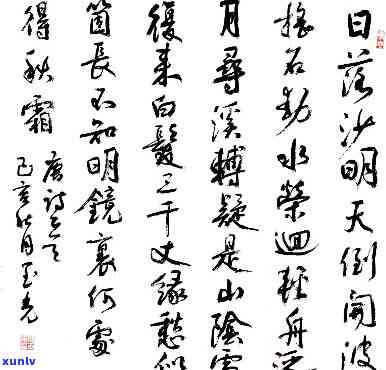 日落沙明天倒開波
搖石動水縈迴輕舟泛
月尋溪轉疑是山陰雪
後来白髮三千丈緣愁似
箇長不知明鏡裏何處
得秋霜
唐詩二首
己亥秋月
xunlv